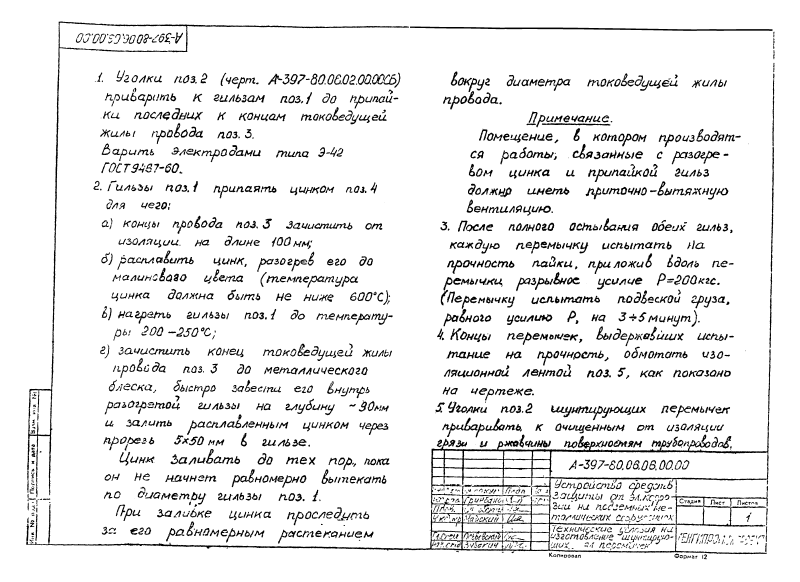 А-397-80.06.03.00.00
1. Уголки поз.2 (черт. А-397-80.06.02.00.00СБ)
приварить к гильзам поз.1 до припай-
ки последних к концам токоведущей
жилы провода поз.3.
Варить электродами типа Э-42
ГОСТ 9467-60.
2. Гильзы поз.1 припаять цинком поз.4
для чего:
а) концы провода поз.3 зачистить от
изоляции на длине 100мм;
б) расплавить цинк, разогрев его до
малинового цвета (температура
цинка должна быть не ниже 600°С);
в) нагреть гильзы поз.1 до температу-
ры 200-250°С;
г) зачистить конец токоведущей жилы
провода поз.3 до металлического
блеска, быстро завести его внутрь
разогретой гильзы на глубину ~90мм
и залить расплавленным цинком через
прорезь 5х50мм в гильзе.
Цинк заливать до тех пор, пока
он не начнет равномерно вытекать
по диаметру гильзы поз.1.
При заливке цинка проследить
за его равномерным растеканием
вокруг диаметра токоведущей жилы
провода.
Примечание.
Помещение, в котором производят-
ся работы, связанные с разогре-
вом цинка и припайкой гильз
должно иметь приточно-вытяжную
вентиляцию.
3. После полного остывания обеих гильз,
каждую перемычку испытать на
прочность пайки, приложив вдоль пе-
ремычки разрывное усилие Р=200кгс.
(Перемычку испытать подвеской груза,
равного усилию Р, на 3÷5минут).
4. Концы перемычек, выдержавших испы-
тание на прочность, обмотать изо-
ляционной лентой поз.5, как показано
на чертеже.
5. Уголки поз.2 шунтирующих перемычек
приваривать к очищенным от изоляции
грязи и ржавчины поверхностям трубопроводов.
А-397-80.06.06.00.00
Устройства средств
защиты от эл.корро-
зии на подземных ме-
таллических сооружениях
Стадия Лист Листов
1
Технические условия на
изготовление шунтирую-
щих эл перемычек
Копировал Формат 12
Инв. № подл. Подпись и дата Взам. инв. №